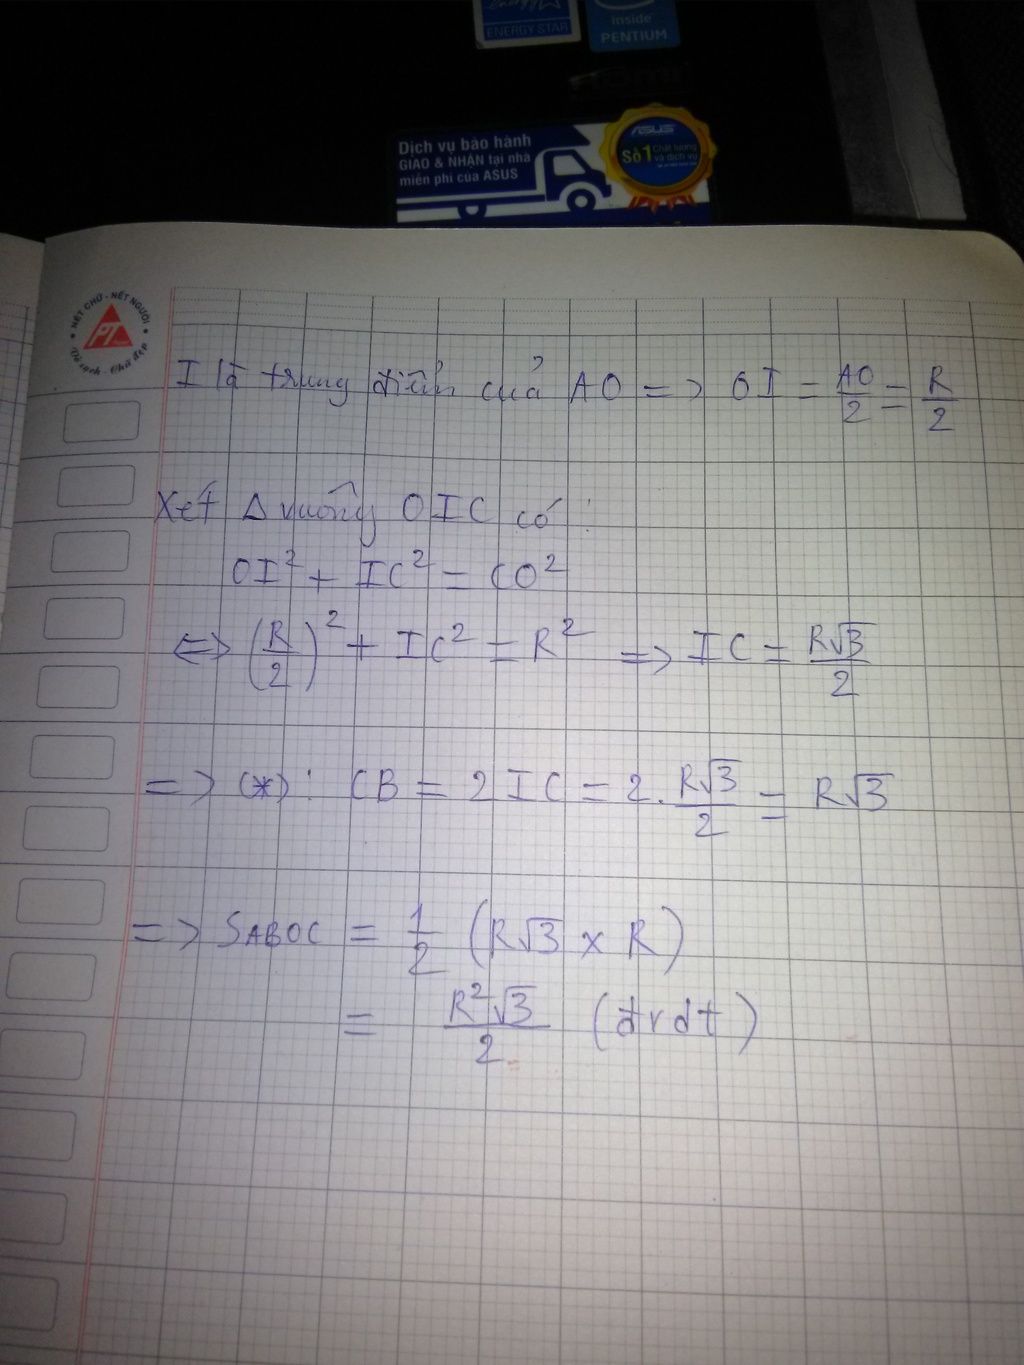 ENERGY STAR
inside
PENTIUM
Dịch vụ bảo hành
GIAO & NHẬN tại nhà
miễn phí của ASUS
ASUS
Số 1 Chất lượng
và dịch vụ
NÉT CHỮ - NẾT NGƯỜI
PT
Vở sạch - Chữ đẹp
I là trung điểm của AO => OI = AO/2 = R/2
Xét Δ vuông OIC có :
OI² + IC² = CO²
<=> (R/2)² + IC² = R² => IC = R√3/2
=> (*) : CB = 2 IC = 2. R√3/2 = R√3
=> SABOC = 1/2 (R√3 x R)
= R²√3/2 (đvdt)